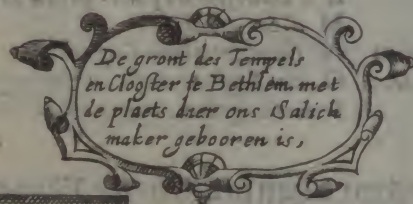 De gront des Tempels
en Clooster te Bethlem. met
de plaets daer ons Salich
maker gebooren is,